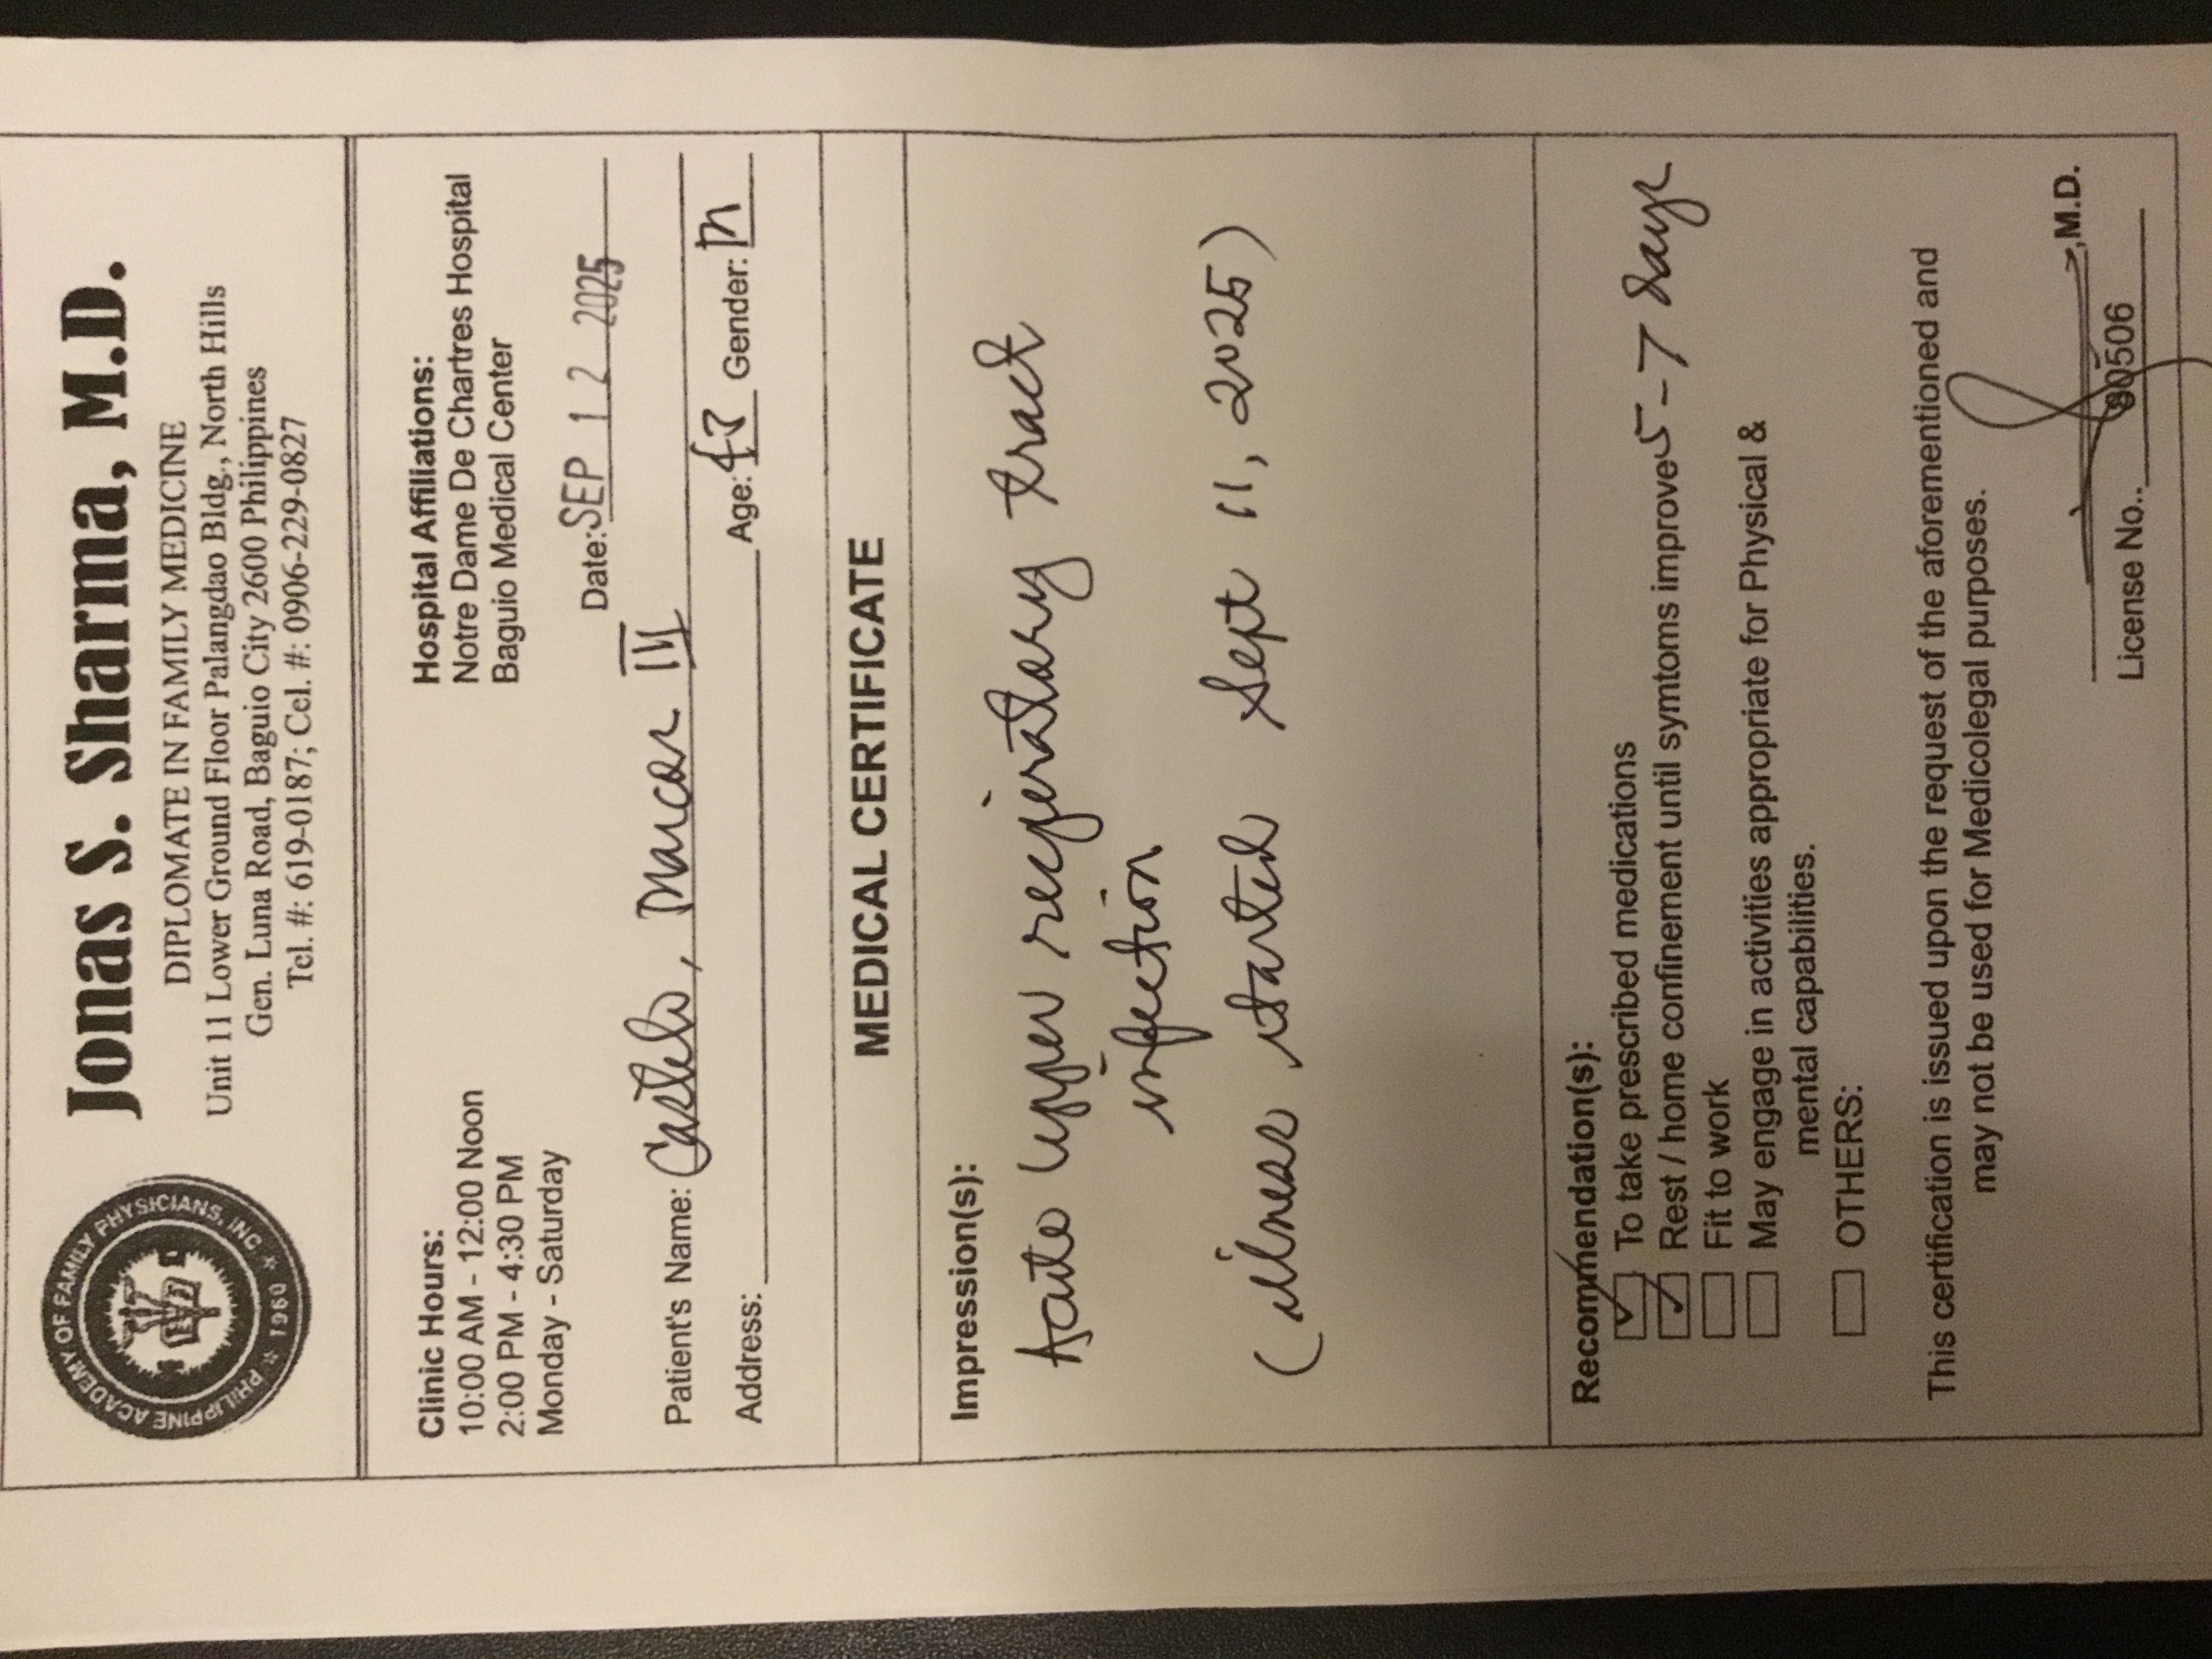 PHILIPPINE ACADEMY OF FAMILY PHYSICIANS, INC ★ 1960 ★
Jonas S. Sharma, M.D.
DIPLOMATE IN FAMILY MEDICINE
Unit 11 Lower Ground Floor Palangdao Bldg., North Hills
Gen. Luna Road, Baguio City 2600 Philippines
Tel. #: 619-0187; Cel. #: 0906-229-0827
Clinic Hours:
10:00 AM - 12:00 Noon
2:00 PM - 4:30 PM
Monday - Saturday
Hospital Affiliations:
Notre Dame De Chartres Hospital
Baguio Medical Center
Date: SEP 12 2025
Patient's Name: , III
Address: Age: Gender: M
MEDICAL CERTIFICATE
Impression(s):
Acute upper respiratory tract
infection
(illness started Sept 11, 2025)
Recommendation(s):
To take prescribed medications
Rest / home confinement until symtoms improves 5-7 days
Fit to work
May engage in activities appropriate for Physical &
mental capabilities.
OTHERS:
This certification is issued upon the request of the aforementioned and
may not be used for Medicolegal purposes.
,M.D.
License No.. 90506